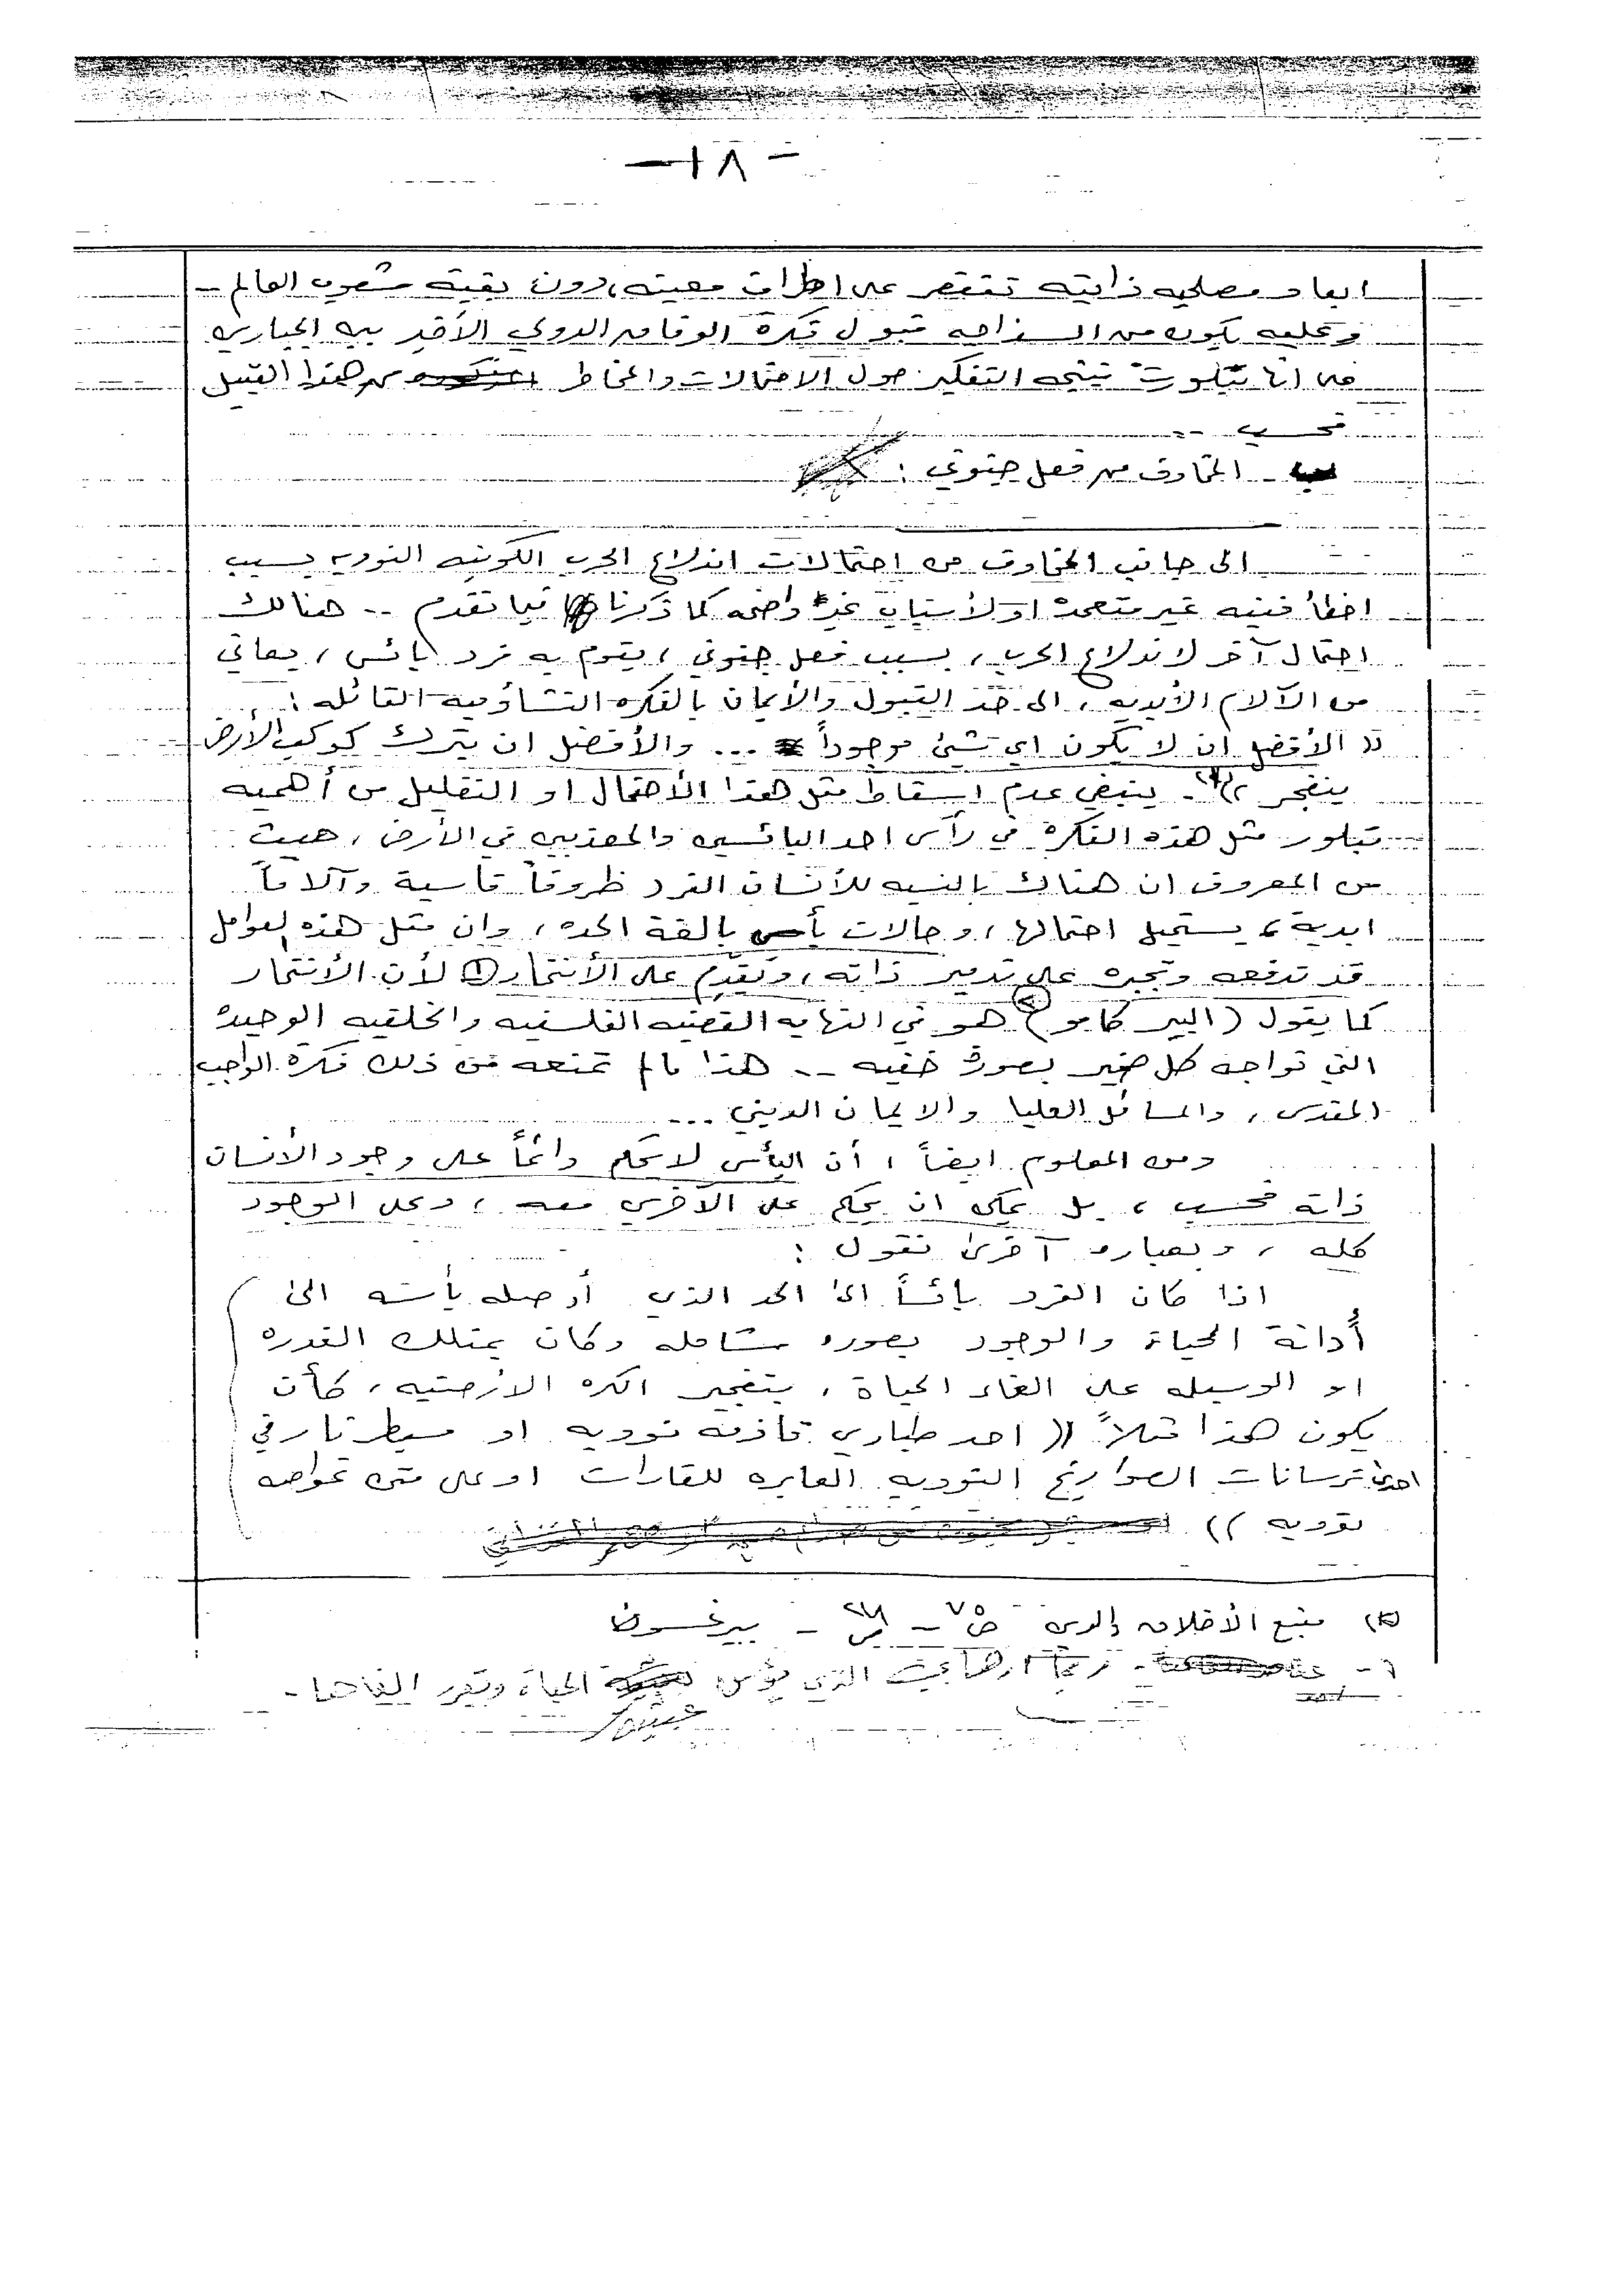 - ١٨ -
ابعاد مصلحيه ذاتيته تقتصر على اطراف معينه، دون بقية شعوب العالم -
وعليه يكون من السذاجه قبول فكرة الوفاق الدولي الأخير بين الجبارين
على انها تبلورت نتيجه التفكير حول الاحتمالات والمخاطر من هذا القبيل
فحسب --
المخاوف من فعل جنوني :
الى جانب المخاوف من احتمالات اندلاع الحرب الكونيه النوويه بسبب
اخطأ فنيه غير متعمدة او لأسباب غير واضحه كما ذكرنا فيما تقدم -- هنالك
احتمال آخر لاندلاع الحرب، بسبب فعل جنوني، يقوم به فرد يائس، يعاني
من الآلام الأبديه، الى حد القبول والأيمان بالفكره التشاؤميه القائله :
(( الأفضل ان لا يكون اي شيئ موجوداً ... والأفضل ان يترك كوكب الأرض
ينفجر ))(*) - ينبغي عدم اسقاط مثل هذا الأحتمال او التقليل من أهميه
تبلور مثل هذه الفكرة في رأس احد اليائسين والمعذبين في الأرض، حيث
من المعروف ان هناك بالنسبه للأنسان الفرد ظروفاً قاسية وآلاماً
ابدية، يستحيل احتمالها، وحالات يأس بالغة الحده، وان مثل هذه العوامل
قد تدفعه وتجبره على تدمير ذاته، وتقدم على الأنتحار (١) لأن الأنتحار
كما يقول (البير كامو) (٢) هو في النهايه القضيه الفلسفيه والخلقيه الوحيدة
التي تواجه كل ضمير بصورة خفيه -- هذا ما لم تمنعه من ذلك فكرة الواجب
المقدس، والمسائل العليا والايمان الديني ...
ومن المعلوم ايضاً، أن اليأس لا يحكم دائماً على وجود الأنسان
ذاته فحسب، بل يمكن ان يحكم على الآخرين معه، وعلى الوجود
كله، وبعباره آخرى نقول :
اذا كان الفرد يائساً الى الحد الذي أوصله يأسه الى
أدانة الحياة والوجود بصوره شامله وكان يمتلك القدره
او الوسيله على الغاء الحياة، بتفجير الكره الارضيه، كأن
يكون هذا مثلاً (( احد طياري قاذفه نوويه او مسيطرنا في
احدى ترسانات الصواريخ النوويه العابره للقارات او على متن غواصه
نوويه ))
(*) منبع الأخلاق والدين ص ٧٥ - - بيرغسون
١ - الذي يؤمن الحياة ويقرر الغاءها -